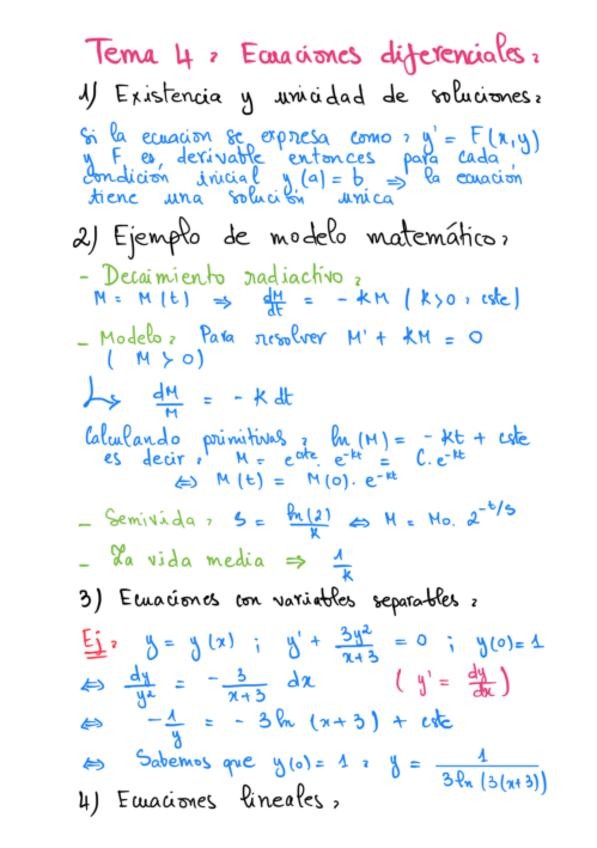 Tema 4 : Ecuaciones diferenciales :
1) Existencia y unicidad de soluciones :
Si la ecuación se expresa como : y' = F(x,y)
y F es derivable entonces para cada
condición inicial y(a) = b ⇒ la ecuación
tiene una solución unica
2) Ejemplo de modelo matemático :
- Decaimiento radiactivo :
M = M(t) ⇒ dM/dt = - kM ( k>0 , cste)
- Modelo : Para resolver M' + kM = 0
( M > 0)
↳ dM/M = - k dt
Calculando primitivas : ln (M) = - kt + cste
es decir , M = e^cte . e^-kt = C. e^-kt
⇔ M(t) = M(0). e^-kt
- Semivida : s = ln(2)/k ⇔ M = Mo. 2^-t/s
- La vida media ⇒ 1/k
3) Ecuaciones con variables separables :
Ej : y = y(x) ; y' + 3y²/x+3 = 0 ; y(0)=1
⇔ dy/y² = - 3/x+3 dx ( y' = dy/dx )
⇔ - 1/y = - 3 ln (x+3) + cste
⇔ Sabemos que y(0) = 1 : y = 1/3 ln (3(x+3))
4) Ecuaciones lineales :